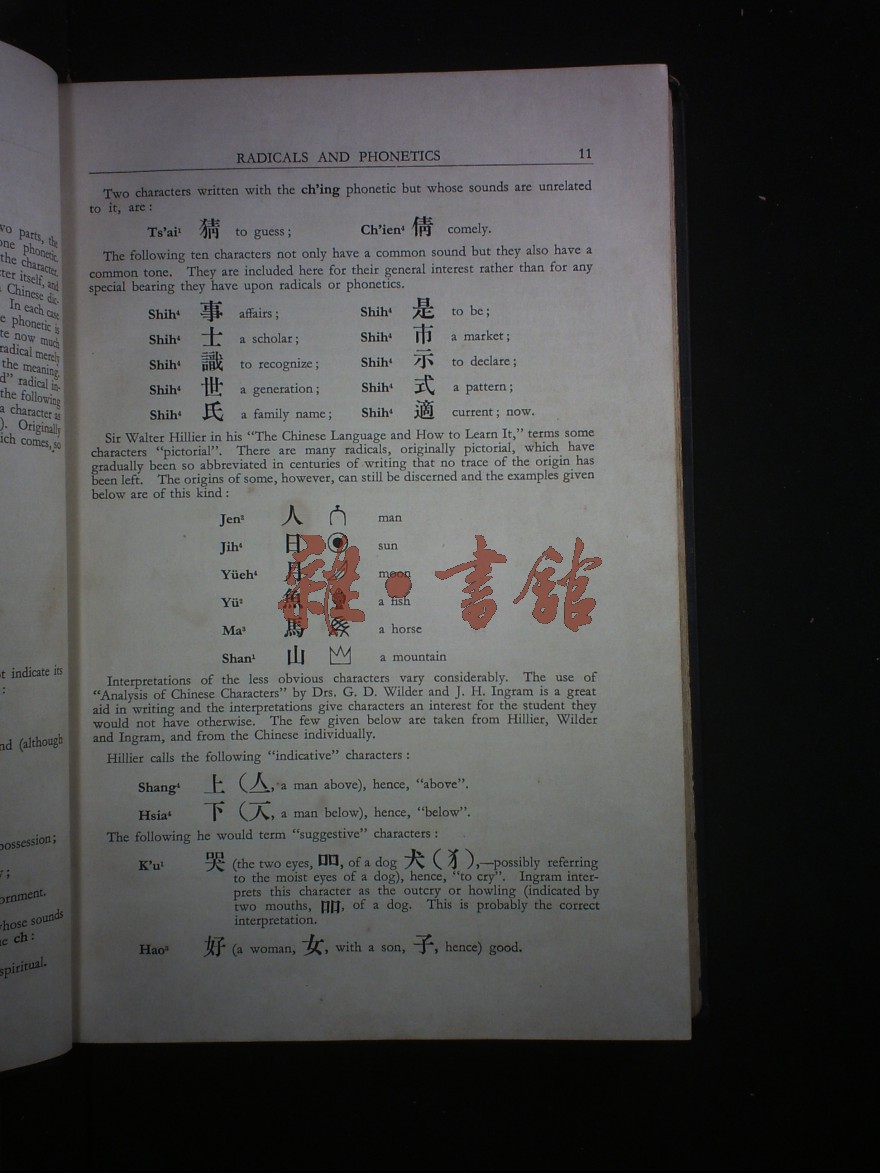 RADICALS AND PHONETICS 11
Two characters written with the ch'ing phonetic but whose sounds are unrelated
to it, are :
Ts'ai¹ 猜 to guess ; Ch'ien⁴ 倩 comely.
The following ten characters not only have a common sound but they also have a
common tone. They are included here for their general interest rather than for any
special bearing they have upon radicals or phonetics.
Shih⁴ 事 affairs ; Shih⁴ 是 to be ;
Shih⁴ 士 a scholar ; Shih⁴ 市 a market ;
Shih⁴ 識 to recognize ; Shih⁴ 示 to declare ;
Shih⁴ 世 a generation ; Shih⁴ 式 a pattern ;
Shih⁴ 氏 a family name ; Shih⁴ 適 current ; now.
Sir Walter Hillier in his "The Chinese Language and How to Learn It," terms some
characters "pictorial". There are many radicals, originally pictorial, which have
gradually been so abbreviated in centuries of writing that no trace of the origin has
been left. The origins of some, however, can still be discerned and the examples given
below are of this kind :
Jen² 人 man
Jih⁴ 日 sun
Yüeh⁴ 月 moon
Yü² 魚 a fish
Ma³ 馬 a horse
Shan¹ 山 a mountain
雜·書館
Interpretations of the less obvious characters vary considerably. The use of
"Analysis of Chinese Characters" by Drs. G. D. Wilder and J. H. Ingram is a great
aid in writing and the interpretations give characters an interest for the student they
would not have otherwise. The few given below are taken from Hillier, Wilder
and Ingram, and from the Chinese individually.
Hillier calls the following "indicative" characters :
Shang⁴ 上 (, a man above), hence, "above".
Hsia⁴ 下 (, a man below), hence, "below".
The following he would term "suggestive" characters :
K'u¹ 哭 (the two eyes, 吅, of a dog 犬 (犭),—possibly referring
to the moist eyes of a dog), hence, "to cry". Ingram inter-
prets this character as the outcry or howling (indicated by
two mouths, 吅, of a dog. This is probably the correct
interpretation.
Hao³ 好 (a woman, 女, with a son, 子, hence) good.
vo parts, the
one phonetic.
the character,
ter itself, and
Chinese dic-
In each case
e phonetic is
te now much
radical merely
the meaning.
d" radical in-
the following
a character as
). Originally
ich comes, so
t indicate its
:
nd (although
possession ;
;
ornment.
whose sounds
e ch :
spiritual.